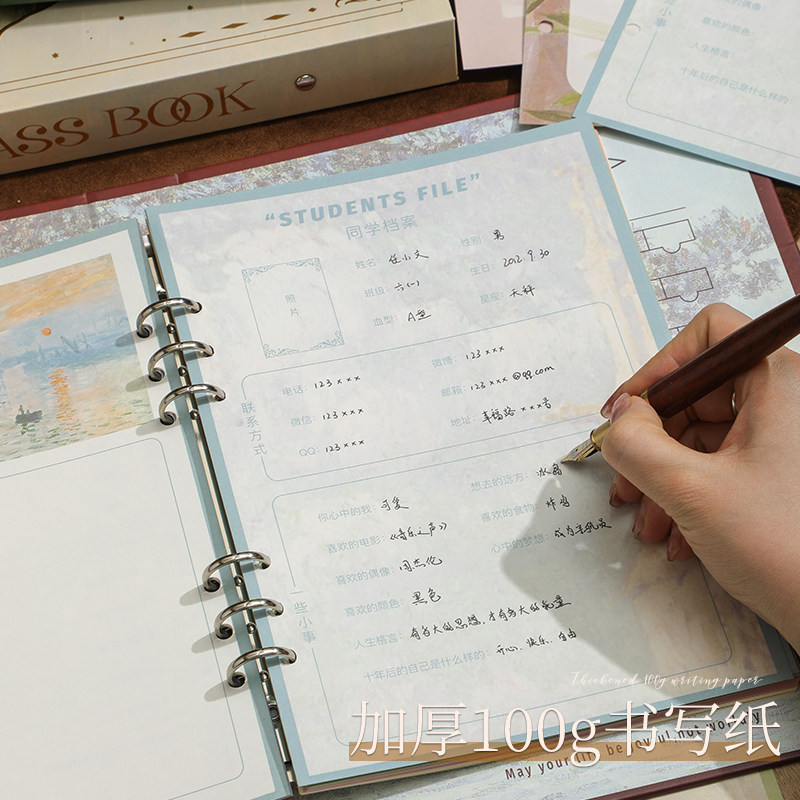 ASS BOOK
喜欢的偶像:
喜欢的颜色:
人生格言:
十年后的自己是什么样的
小事
“STUDENTS FILE”
同学档案
照片
姓名: 任小文
性别: 男
班级: 六(一)
生日: 2012.9.30
血型: A型
星座: 天秤
联系方式
电话: 123×××
微博: 123×××
微信: 123×××
邮箱: 123×××@qq.com
QQ: 123×××
地址: 幸福路×××号
一些小事
你心中的我: 可爱
想去的远方: 冰岛
喜欢的电影: 《音乐之声》
喜欢的食物: 炸鸡
喜欢的偶像: 周杰伦
心中的梦想: 成为宇航员
喜欢的颜色: 黑色
人生格言: 有多大的思想,才有多大的能量
十年后的自己是什么样的: 开心、快乐、自由
Thickened 100g writing paper
加厚100g书写纸
May your life be joyful, not worldly